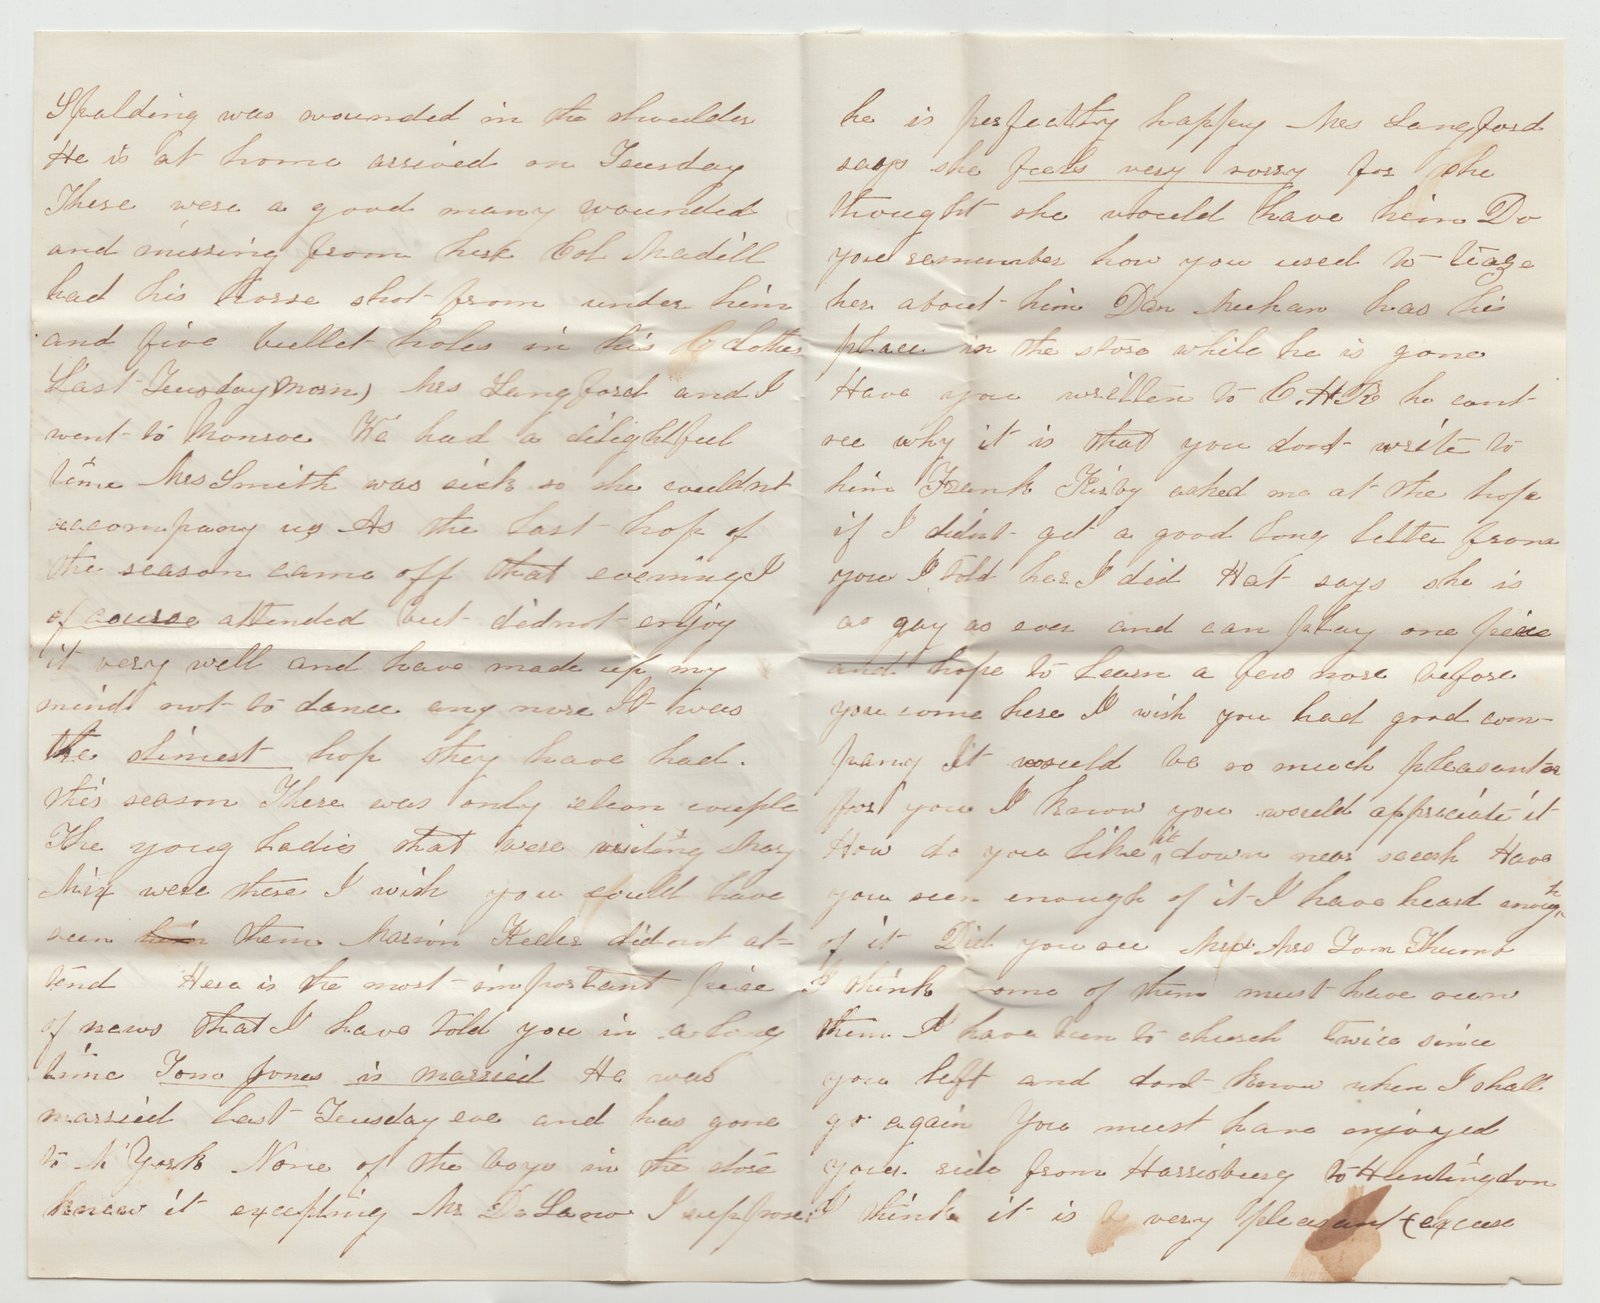 Spalding was wounded in the shoulder
He is at home arrived on Teusday
There were a good many wounded
and missing from here Col Madill
had his horse shot from under him
and five bullet holes in his clothes
Last Teusday morn) Mrs Langford and I
went to Monroe We had a delightful
time Mrs Smith was sick so she couldnt
accompany us As the last hop of
the season came off that evening I
of course attended but did not enjoy
it very well and have made up my
mind not to dance any more It was
the slimest hop they have had.
this season There was only eleven couple
The youg Ladies that were visiting Mary
Mix were there I wish you could have
seen him them Marion Keeler did not at-
tend Here is the most important peice
of news that I have told you in a long
time Tom Jones is married He was
married last Teusday eve and has gone
to N York None of the boys in the store
knew it excepting Mr DeLano I suppose
he is perfectly happy Mrs Langford
says she feels very sorry for she
thought she would have him Do
you remember how you used to teaze
her about him Dan Meehan has his
place in the store while he is gone
Have you written to C.H.R he cant
see why it is that you dont write to
him Frank Kirby asked me at the hop
if I didnt get a good long letter from
you I told her I did Hat says she is
as gay as ever and can play one peice
and hope to learn a few more before
you come here I wish you had good com-
pany It would be so much pleasanter
for you I know you would appreciate it
How do you like it down near secesh Have
you seen enough of it I have heard enough
of it Did you see Mr & Mrs Tom Thumb
I think some of them must have seen
them I have been to church twice since
you left and dont know when I shall
go again You must have enjoyed
your ride from Harrisburg to Huntingdon
I think it is a very pleasant (excuse